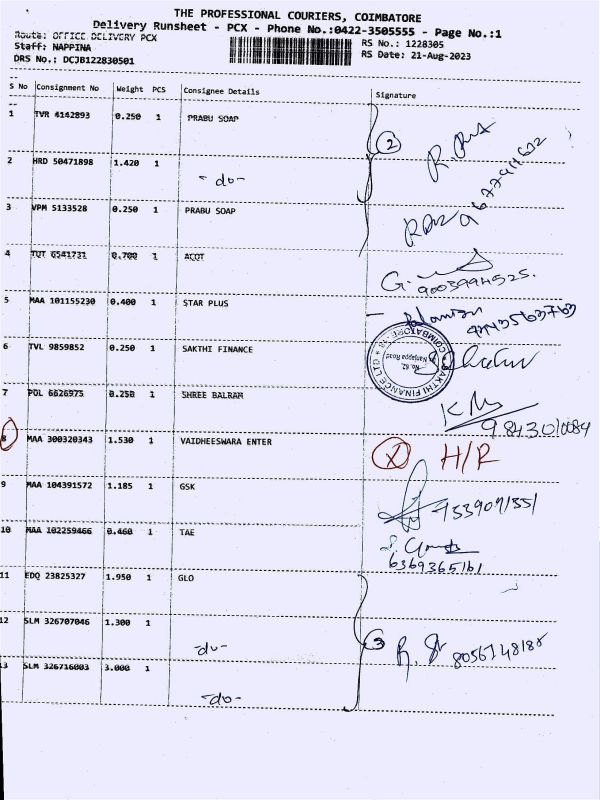 THE PROFESSIONAL COURIERS, COIMBATORE
Delivery Runsheet - PCX - Phone No.:0422-3505555 - Page No.:1
Route: OFFICE DELIVERY PCX
RS No.: 1228305
Staff: NAPPINA
RS Date: 21-Aug-2023
DRS No.: DCJB122830501
S No Consignment No Weight PCS Consignee Details Signature
1 TVR 4142893 0.250 1 PRABU SOAP
2
2 HRD 50471898 1.420 1
-do-
3 VPM 5133528 0.250 1 PRABU SOAP
4 TUT 6541731 0.700 1 ACOT
9003994525.
5 MAA 101155230 0.400 1 STAR PLUS
6 TVL 9859852 0.250 1 SAKTHI FINANCE
SAKTHI FINANCE LTD
No. 62,
Nanjappa Road
COIMBATORE
7 POL 6626975 0.250 1 SHREE BALRAM
9843010084
8 MAA 300320343 1.530 1 VAIDHEESWARA ENTER X H/R
9 MAA 104391572 1.185 1 GSK
10 MAA 102259466 0.460 1 TAE
6369365161
11 EDQ 23825327 1.950 1 GLO
12 SLM 326707046 1.300 1
-do- 3
13 SLM 326716003 3.000 1
-do-